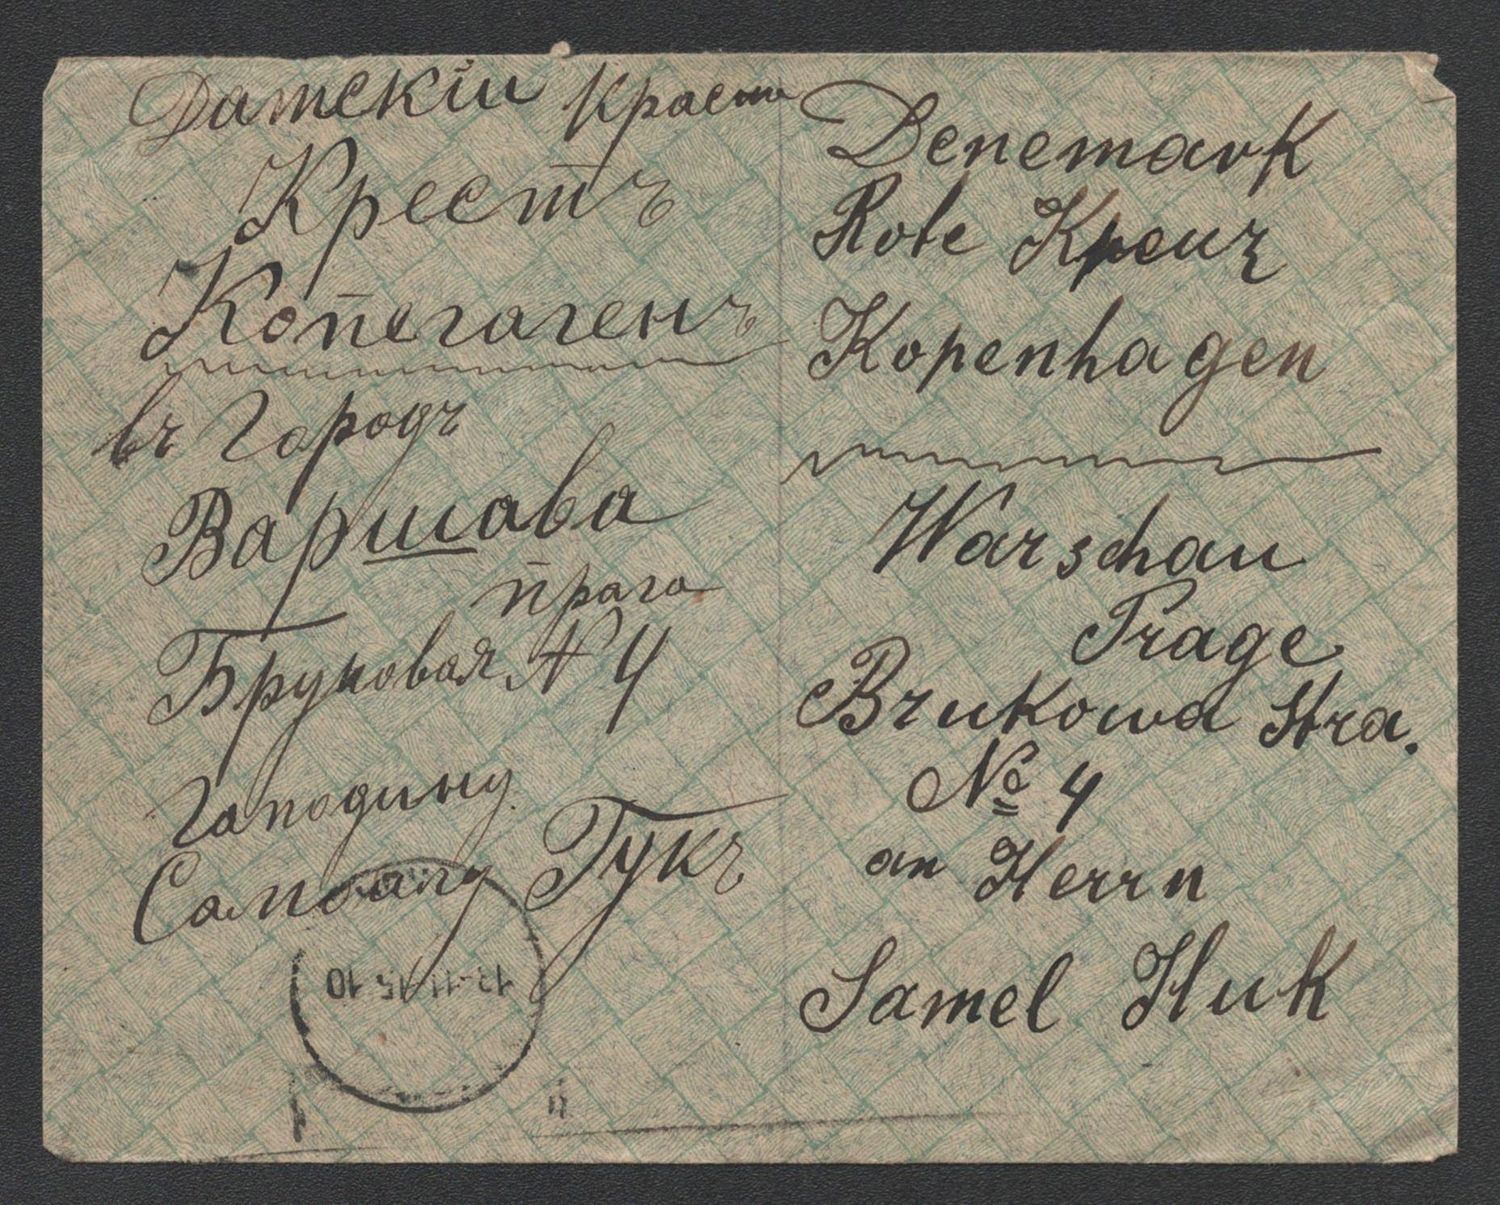 Датскiи Красн
Крестъ
Копегагенъ
въ Городъ
Варшава
Прага
Бруковая № 4
Гаподину
Самуалу Гукъ
13-11 15 10
Denemark
Rote Kreuz
Kopenhagen
Warschau
Prage
Brukowa Stra.
№ 4
an Herrn
Samel Huk